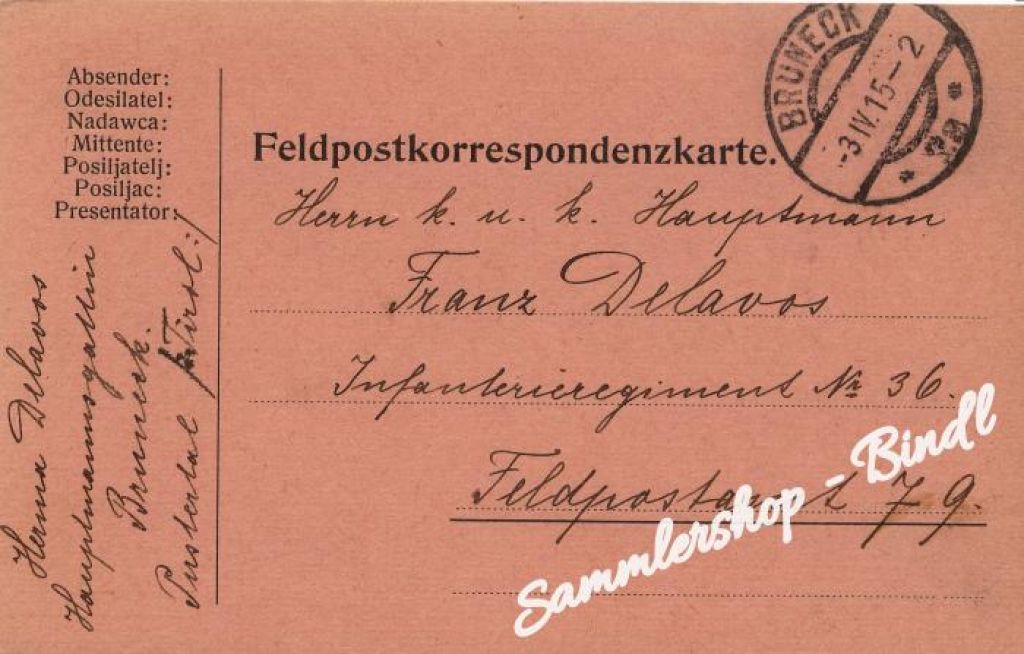 Absender:
Odesilatel:
Nadawca:
Mittente:
Posiljatelj:
Posiljac:
Presentator:
Herma Delavos
Hauptmannsgattin
Bruneck.
Pustertal /:Tirol:/
Feldpostkorrespondenzkarte.
BRUNECK
-3.IV.15-2
Herrn k. u. k. Hauptmann
Franz Delavos
Infanterieregiment № 36.
Feldpostamt 79.
Sammlershop - Bindl